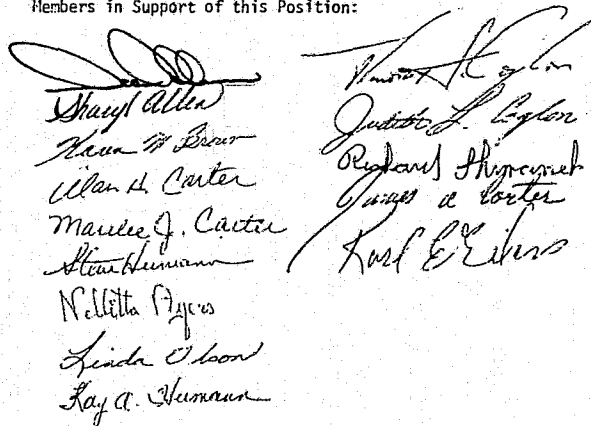 Members in Support of this Position:
Sharyl Allen
Karen M Brown
Alan H. Carter
Marilee J. Carter
Steve Heimann
Nellitta Ayers
Linda Olson
Kay A. Heimann
Judith L. Caylor
Richard
James A Porter
Karl E Eilers